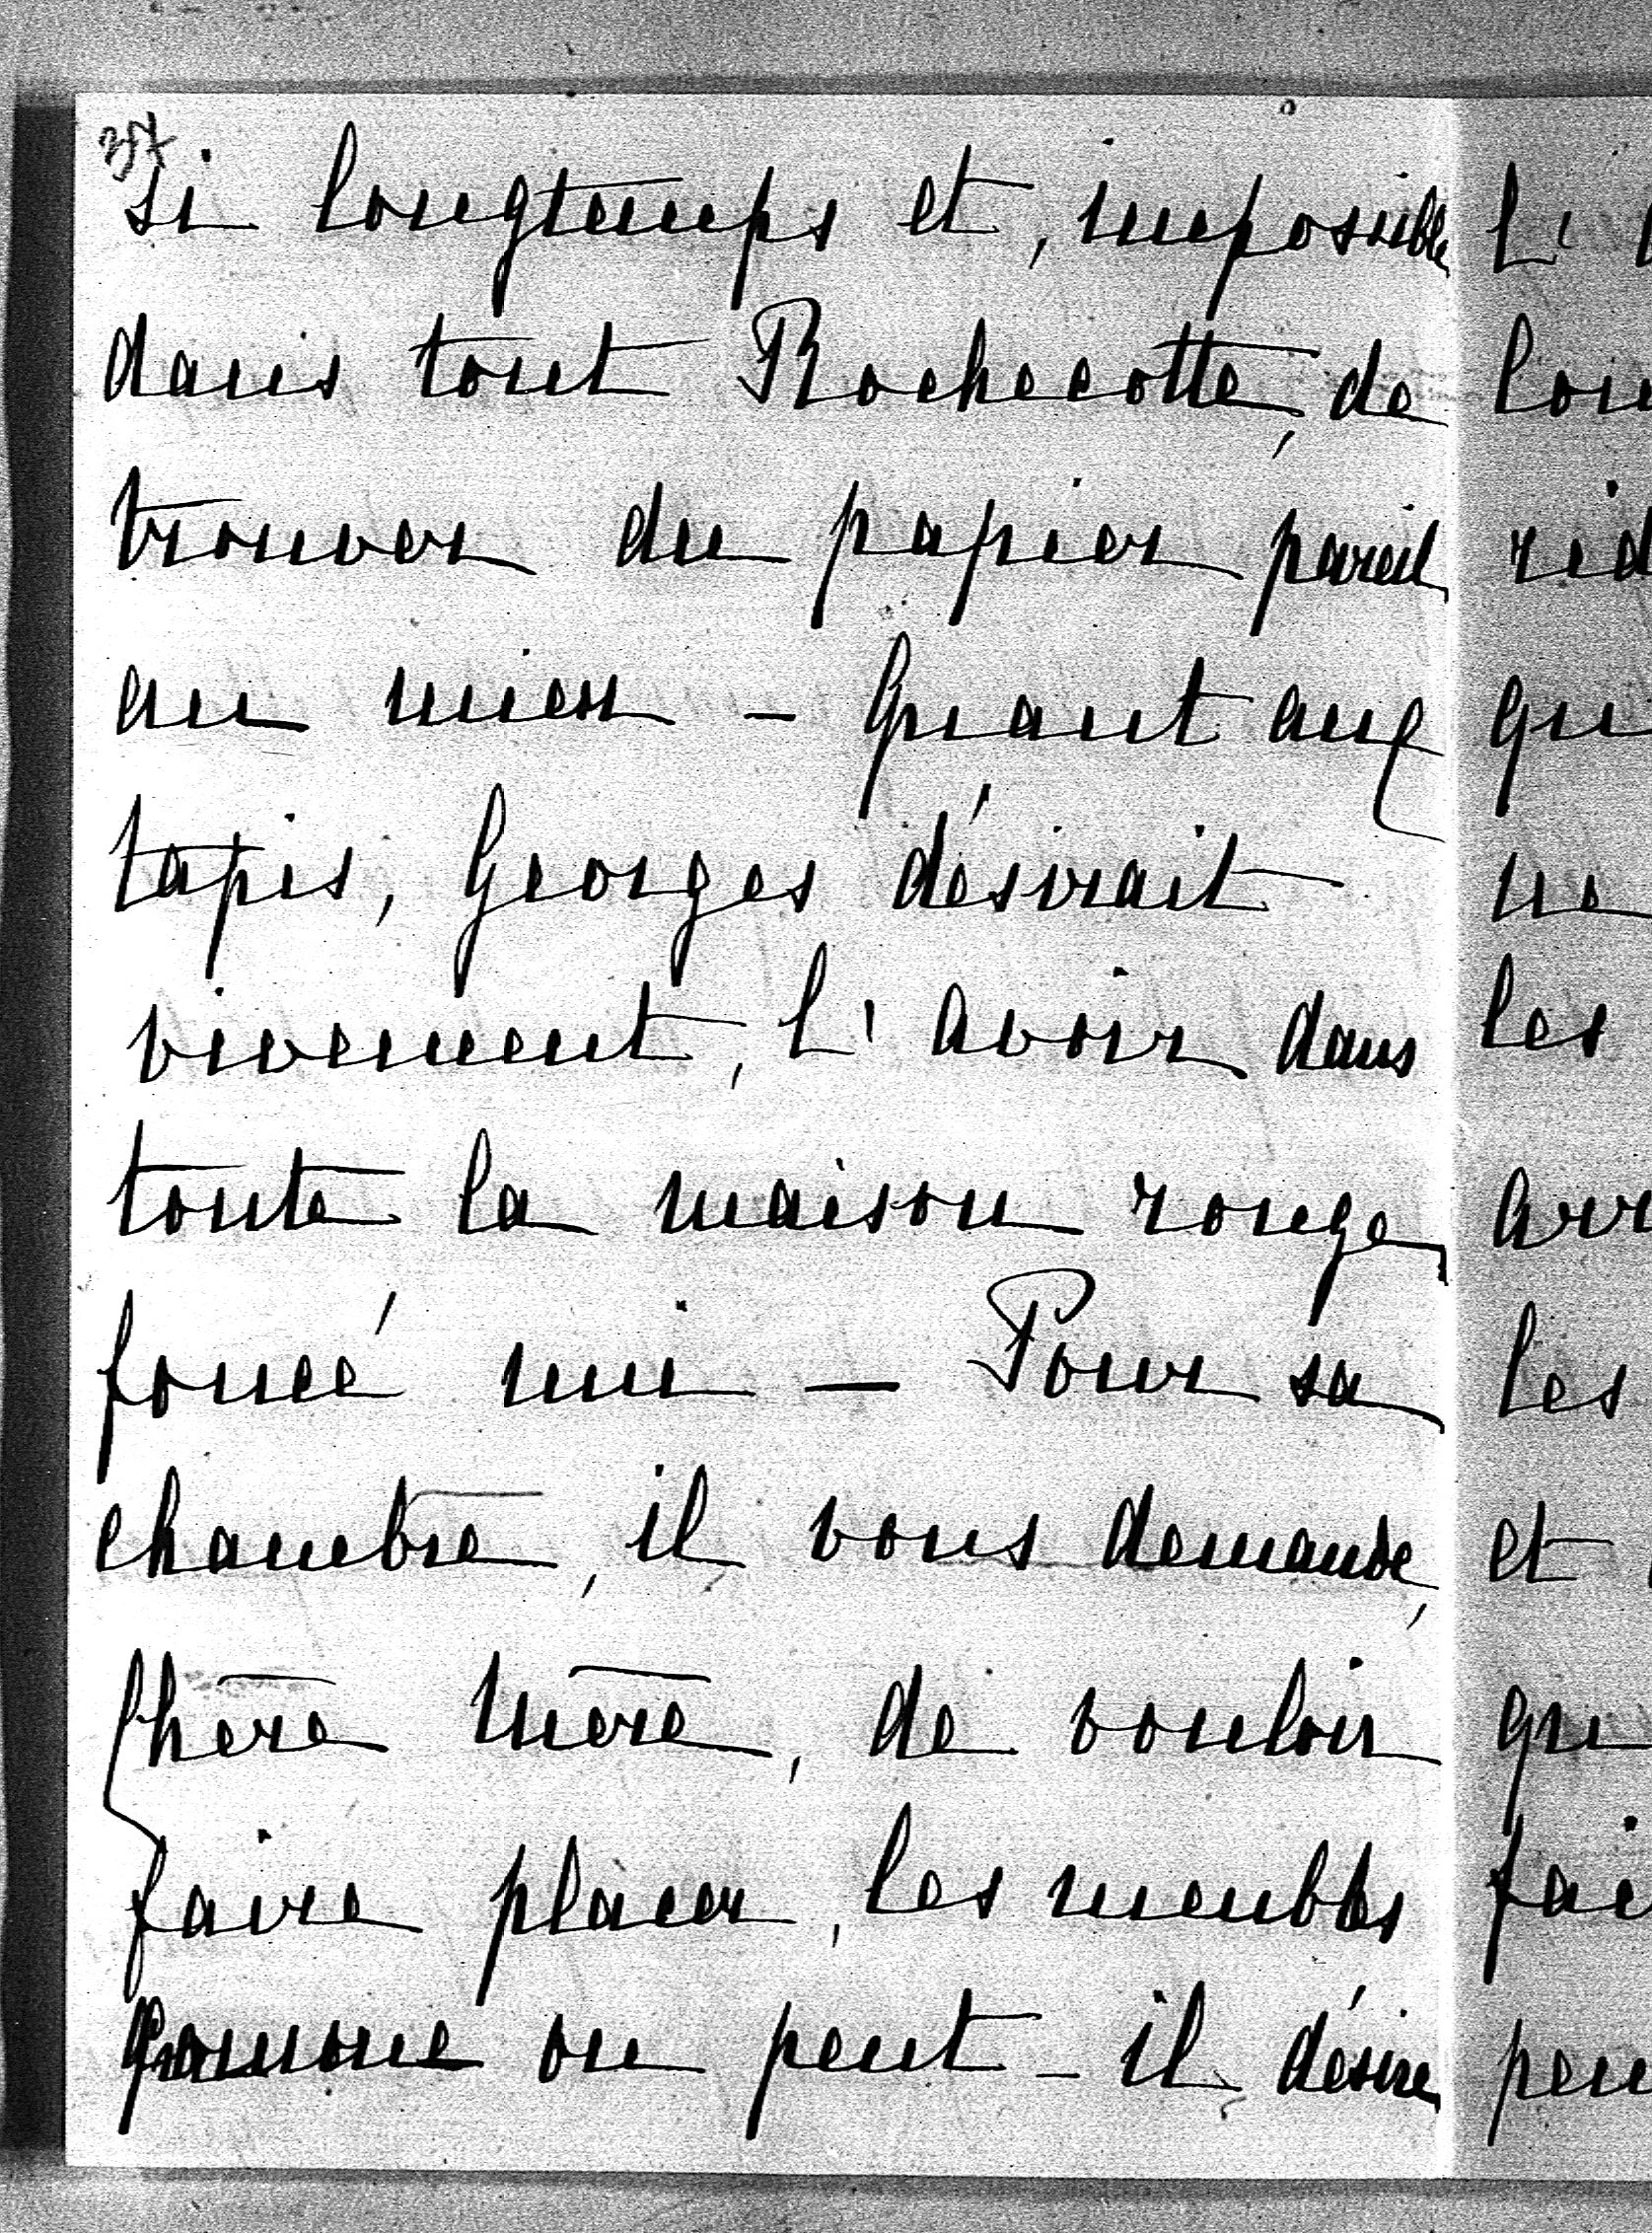 37
si longtemps et, impossible
dans tout Rochecotte, de
trouver du papier pareil
au mien - Quant aux
tapis, Georges désirait
vivement, l'avoir dans
toute la maison rouge
foncé uni - Pour sa
chambre, il vous demande,
Chère Mère, de vouloir
faire placer, les meubles
comme on peut - il désire
l'
les
les
et